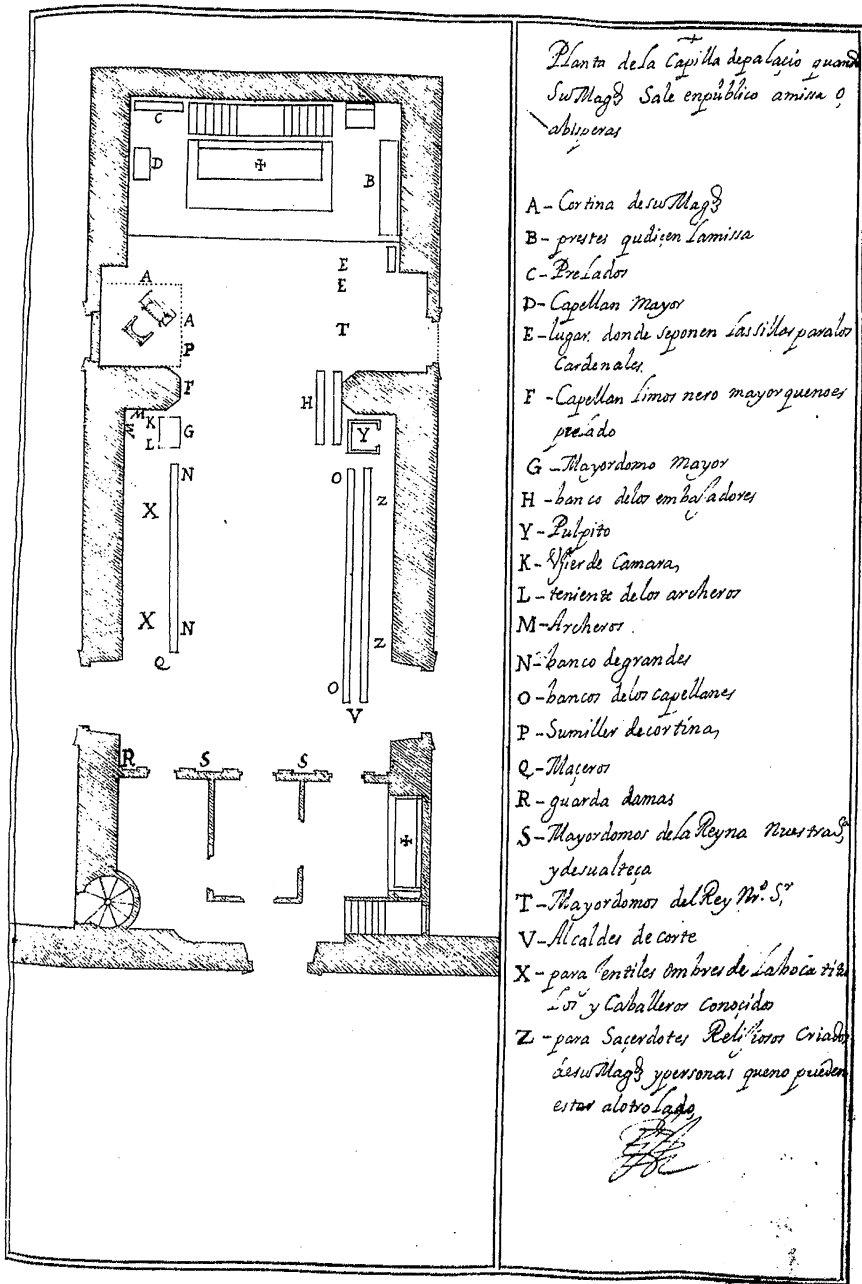 Planta dela Capilla depalaçio quando
su Magd Sale enpublico amissa o
abisperas
A - Cortina desu Magd
B - prestes qudiçen lamissa
C - Prelados
D - Capellan Mayor
E - lugar donde seponen lassillas paralos
Cardenales
F - Capellan limosnero mayor quenoes
prelado
G - Mayordomo Mayor
H - banco delos embajadores
Y - Pulpito
K - Vjier de Camara,
L - teniente delos archeros
M - Archeros
N - banco degrandes
O - bancos delos capellanes
P - Sumiller decortina,
Q - Maçeros
R - guarda damas
S - Mayordomos dela Reyna Nuestra Sa
ydesualteça
T - Mayordomos del Rey Nro. Sr,
V - Alcaldes de corte
X - para Jentiles ombres de laboca
y Caballeros Conoçidos
Z - para Saçerdotes Relijiosos Criados
desu Magd ypersonas queno pueden
estar alotro lado,
C
D
B
E
A
E
A
T
P
F
H
M
K
M
G
Y
L
N
O
X
Z
X
N
Z
Q
O
V
R
S
S